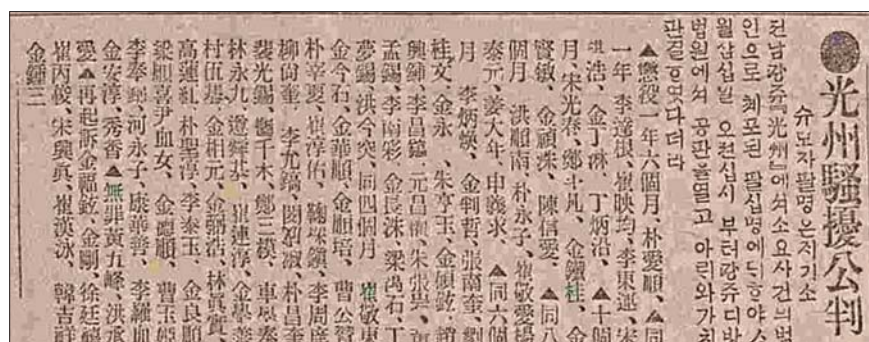 光州騷擾公判
슈모자팔명은저기소
전남광쥬『光州』에셔소요사건의범
인으로톄포된팔십명에디하야스
월삼십일 오젼십시 부터광쥬디방
법원에셔 공판을열고 아리와가치
판결하엿다더라
▲懲役一年六個月、朴愛順、▲同
一年 李達根、崔映均、李東運、宋
琪浩、金丁淋、丁炳沿、▲十個
月、宋光春、鄭斗凡、金鐵桂、金
賢敏、金禎洙、陳信愛、▲同八
個月 洪順南、朴永子、崔敬愛楊
秦元、姜大年、申義求、▲同六個
月 李炳煥、金判哲、張南奎、劉
桂文、金永 、朱亨玉、金碩鉉、趙
興鍾、李昌鎬、元昌 、朱張岩、
孟錫、李南彩、金長洙、梁萬石、丁
夢錫、洪今突、同四個月 崔敬東
金今石、金華順、金順培、曹公贊
朴宰夏、崔淳佑、鞠採鎭、李周庶
柳尙奎 李允鎬、閔 淑、朴昌奎
裴光錫、 千木、鄭三模、車學奉
林永九、 輝基、崔連淳、金學善
村伍基、金相元、金鎬浩、林眞實、
高蓮紅、朴聖淳、李泰玉、金良順
梁 喜尹血女、金德順、曹玉姬
李奉 河永子、康華善、李羅血
金安淳、秀香▲無罪黃五峰、洪承
愛▲再起訴金福鉉、金剛、徐廷禧
崔丙俊、宋興眞、崔漢泳、韓吉祥
金鍾三